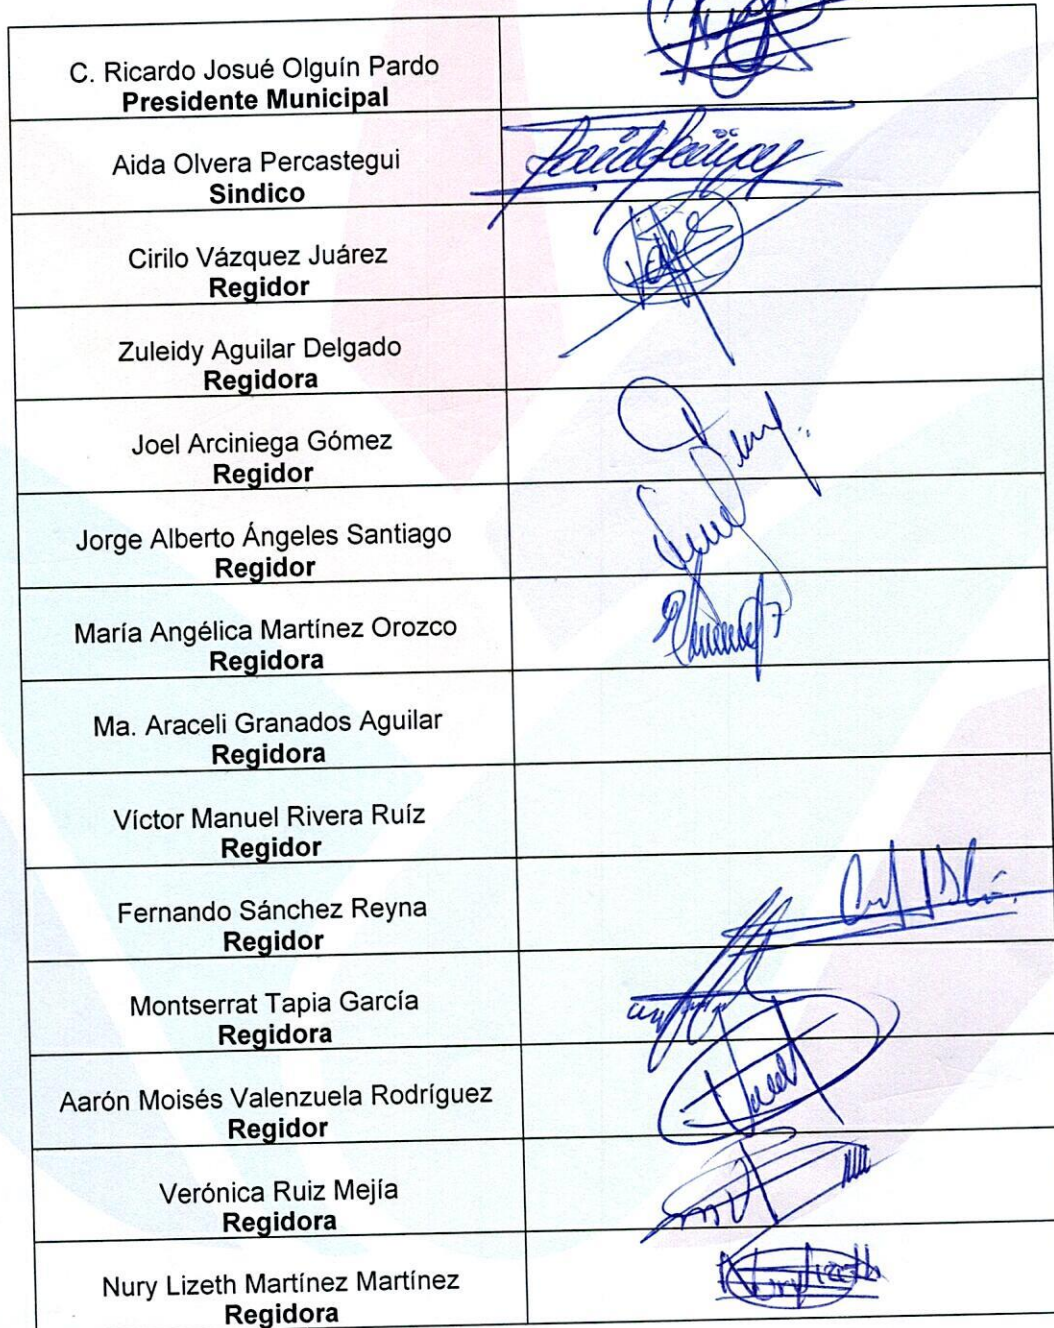 C. Ricardo Josué Olguín Pardo
Presidente Municipal
Aida Olvera Percastegui
Sindico
Cirilo Vázquez Juárez
Regidor
Zuleidy Aguilar Delgado
Regidora
Joel Arciniega Gómez
Regidor
Jorge Alberto Ángeles Santiago
Regidor
María Angélica Martínez Orozco
Regidora
Ma. Araceli Granados Aguilar
Regidora
Víctor Manuel Rivera Ruíz
Regidor
Fernando Sánchez Reyna
Regidor
Montserrat Tapia García
Regidora
Aarón Moisés Valenzuela Rodríguez
Regidor
Verónica Ruiz Mejía
Regidora
Nury Lizeth Martínez Martínez
Regidora